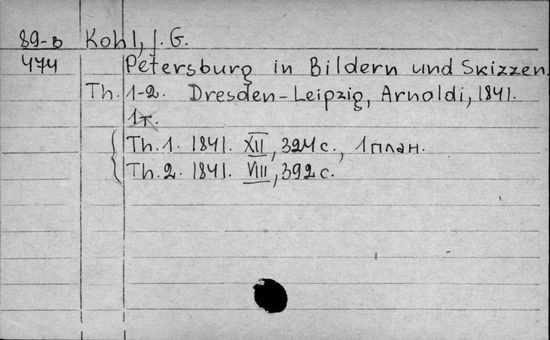 89-в Kohl, J. G.
474 Petersburg in Bildern und Skizzen.
Th. 1-2. Dresden-Leipzig, Arnoldi, 1841.
1т.
Th. 1. 1841. XII, 324 с., 1 план.
Th. 2. 1841. VIII, 392 с.